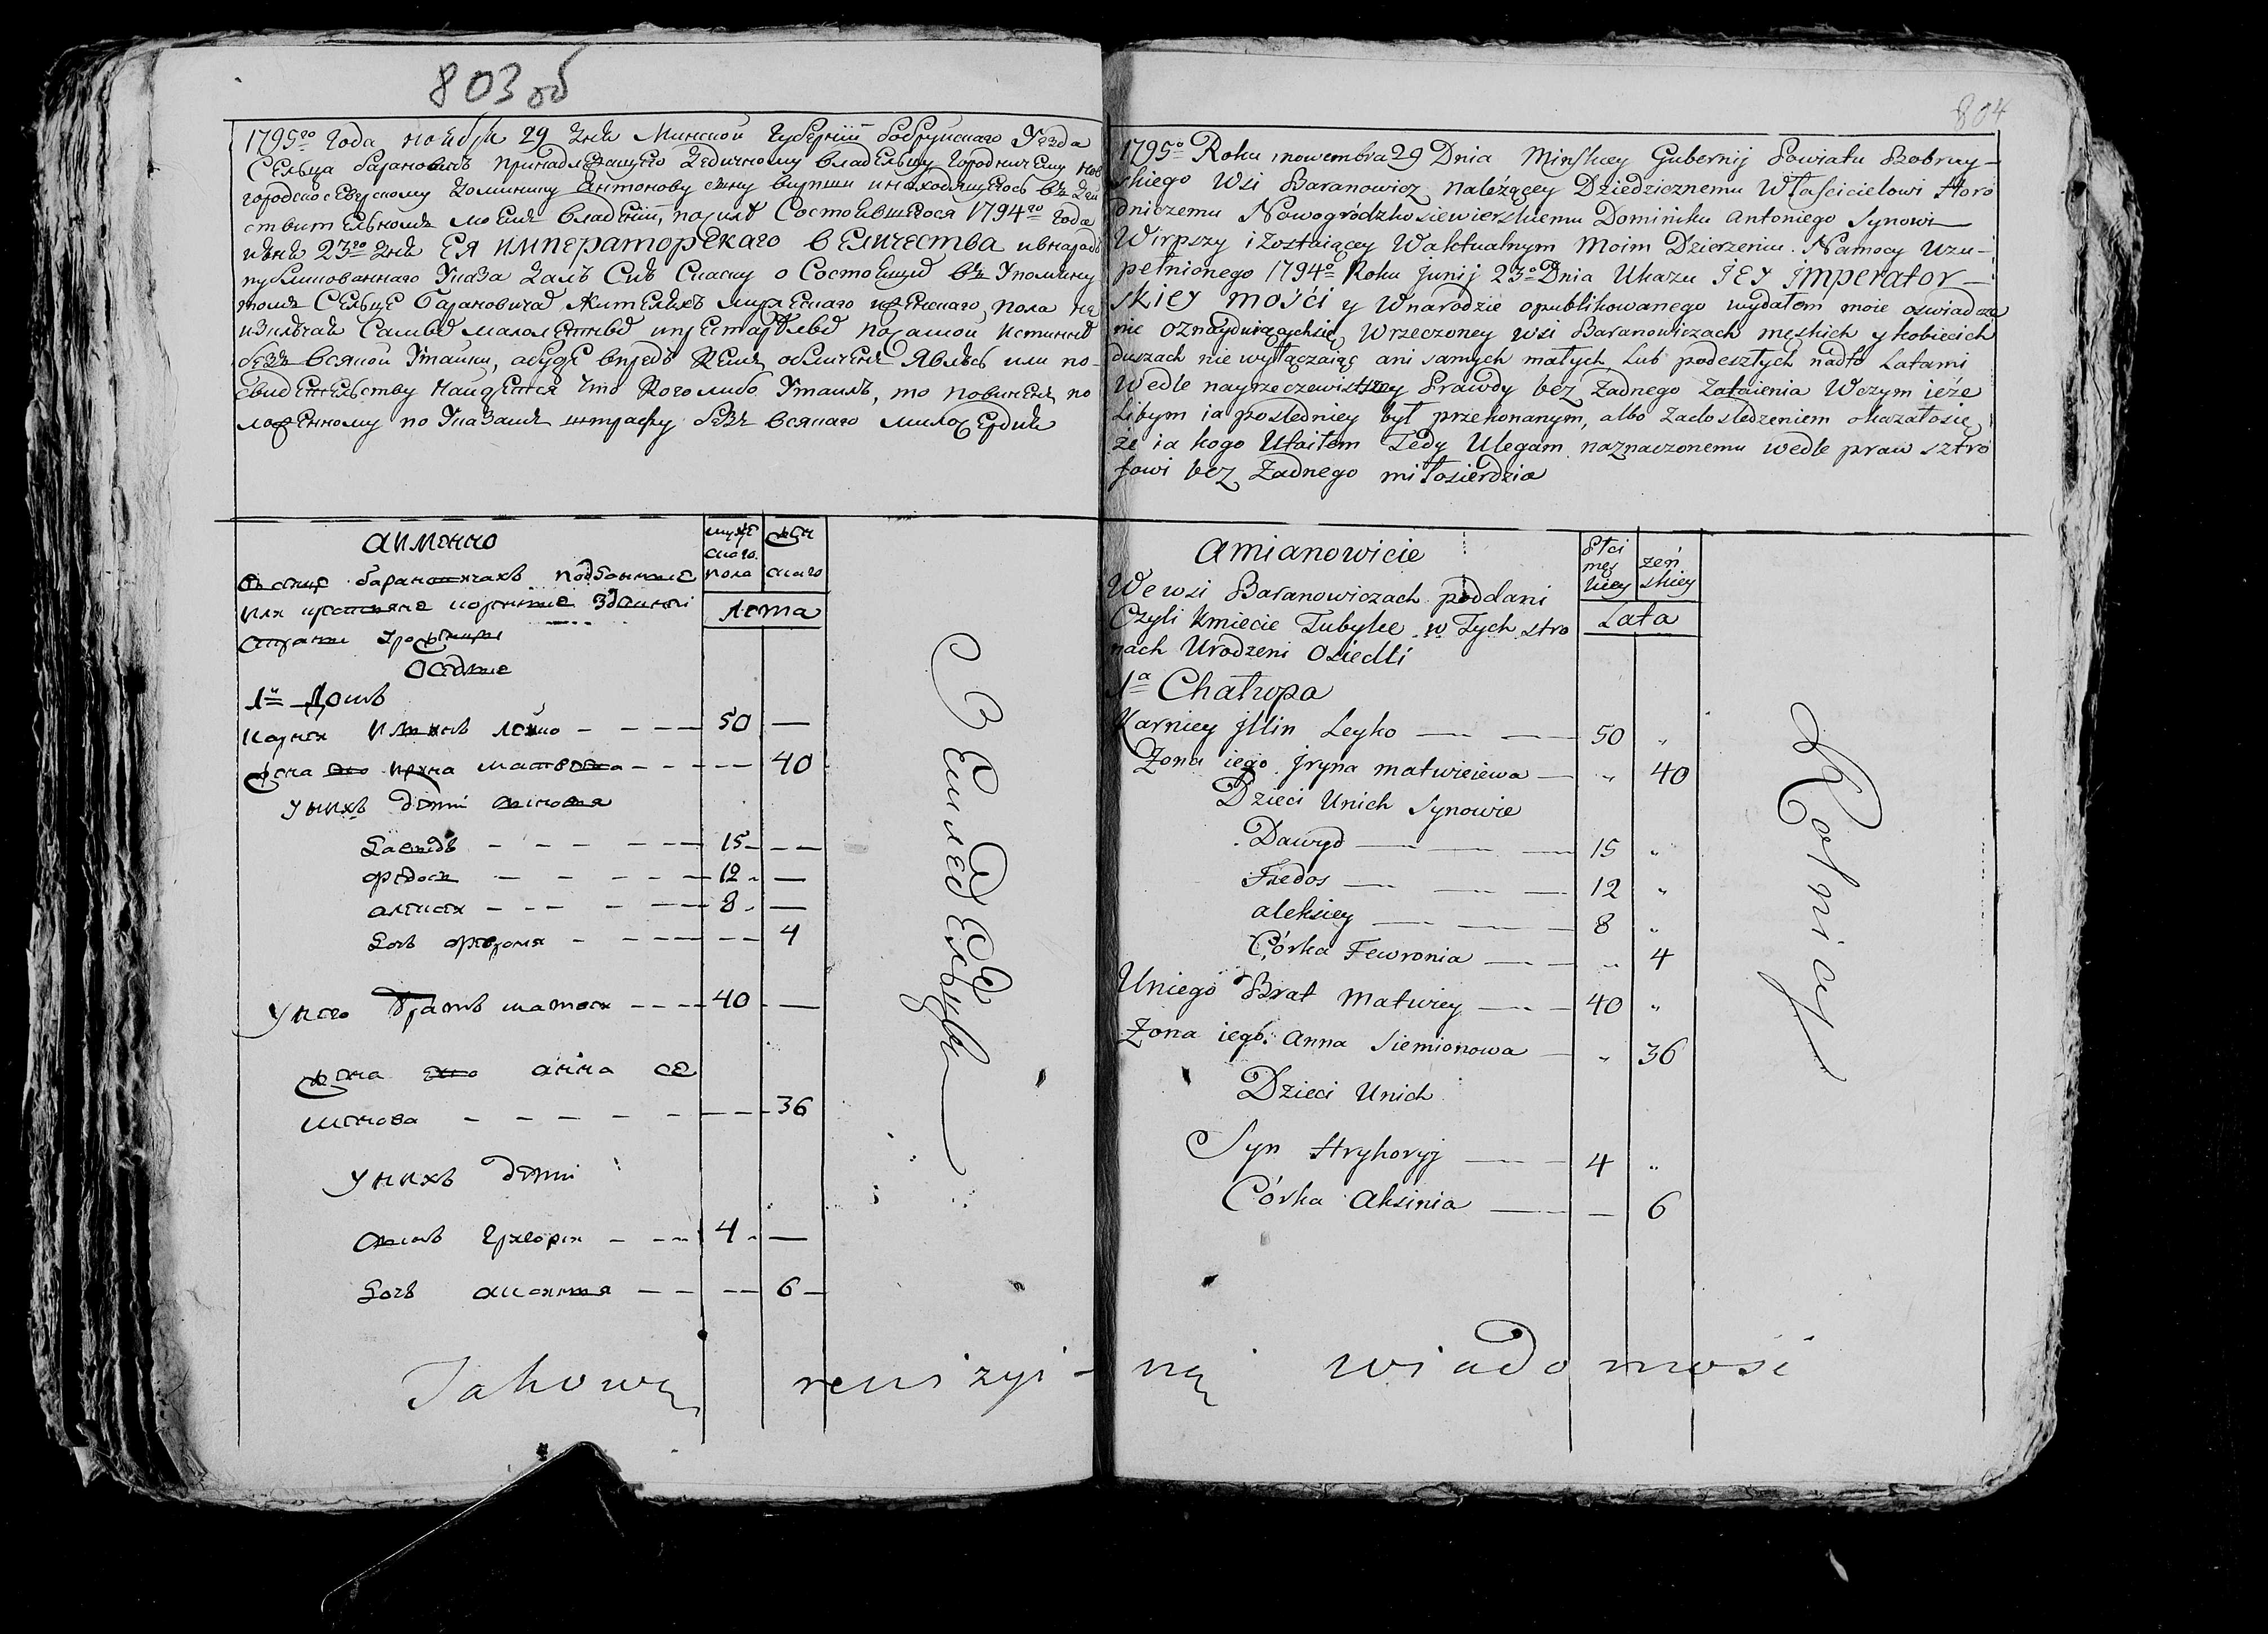 803 об
1795го года ноября 29 дня Минской губернїи Бобруйскаго Уезда
Сельца Барановичъ принадлежащего Дедичному владельцу городничему Нов
городскосеверскому Доминику Антонову сыну вирпши инаходящегось въ Дей
ствительномъ моемъ владенїи, посилѣ Состоявшегося 1794го года
июня 23го дня ЕЯ ИМПЕРАТОРСКАГО ВЕЛИЧЕСТВА ивнародъ
публикованнаго Указа далъ Сию Скаску о Состоящихъ въ Упомяну
томъ Сельце Барановичахъ жителяхъ мужескаго иженскаго пола не
изключая Самыхъ малолетныхъ ипрестарѣлыхъ посамой истиннѣ
безъ всякой Утайки, абуде впредъ кемъ обличенъ явлюсь или по
свидетельству найдется что кого либо Утаилъ, то повиненъ по
ложенному по Указамъ штрафу безъ всякаго милосердия
аименно
муже
скаго
пола
жен
скаго
въ сельце барановичахъ подданные
или крестьяне коренные здешней
Лета
страны уроженцы
Оседлые
1й Домъ
Карней Илинъ Лейко 50 —
жена его ирина матвеева 40
у нихъ дети сыновья
Давидъ 15 —
федосей 12 —
алексей 8 —
Дочь феврония 4
у него братъ матвей 40 —
жена его анна се
менова 36
у нихъ дети
сынъ григорий 4 —
Дочь аксинья 6
Земледелецъ
Takową rewizyi-
804
1795o Roku nowembra 29 Dnia Minskiey Gubernij Powiatu Bobruy-
skiego Wsi Baranowicz należącey Dziedzicznemu Właścicielowi Horo
dniczemu Nowogródzkosiewierskiemu Dominiku Antoniego Synowi
Wirpszy i zostaiącey Waktualnym Moim Dzierzeniu. Namocy uzu-
pełnionego 1794o Roku junij 23o Dnia Ukazu JEY IMPERATOR-
SKIEY MOŚĆI y Wnarodzie opublikowanego wydałem moie oswiadcze
nie oznayduiącychsię Wrzeczoney wsi Baranowiczach męskich y kobiecich
duszach nie wyłączaiąc ani samych małych Lub podeszłych nadto Latami
Wedle nayrzeczewistszey Prawdy bez Żadnego Zataienia Wczym ieże
libym ia posledniey był przekonanym, albo Zadosledzeniem okazałosię
że ia kogo Utaiłem Tedy Ulegam naznaczonemu wedle praw sztro
fowi bez Żadnego miłosierdzia
Amianowicie
Płci
męs
kiey
żeń
skiey
We wsi Baranowiczach poddani
Czyli Kmiecie Tubylce w Tych stro
Lata
nach Urodzeni Osiedli
1a Chałupa
Karniey jllin Leyko 50 „
Żona iego jryna matwieiewa „ 40
Dzieci Unich Synowie
Dawyd 15 „
Fiedos 12 „
aleksiey 8 „
Córka Fewronia „ 4
Uniego Brat Matwiey 40 „
Żona iego Anna Siemionowa „ 36
Dzieci Unich
Syn Hryhoryj 4 „
Córka Aksinia — 6
Rolnicy
ną wiadomość